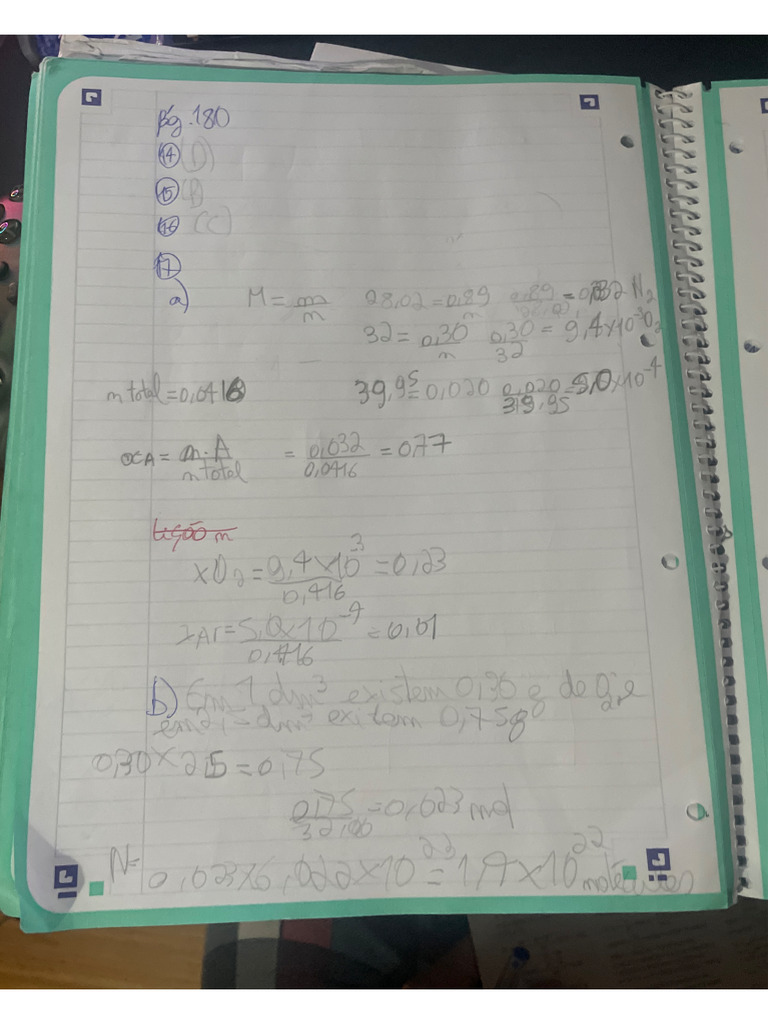 pág. 180
14 (D)
15 (B)
16 (C)
17
a) M = m/n 28,02 = 0,89/n 0,89/28,02 = 0,032 N2
32 = 0,30/n 0,30/32 = 9,4×10^-3 O2
n total = 0,0416 39,95 = 0,020 0,020/39,95 = 5,0×10^-4
xA = n.A/n total = 0,032/0,0416 = 0,77
Lição n
xO2 = 9,4×10^-3/0,416 = 0,23
xAr = 5,0×10^-4/0,416 = 0,01
b) Em 1 dm³ existem 0,30 g de O2 e
em 2,5 dm³ exitem 0,75g
0,30×2,5 = 0,75
0,75/32,00 = 0,023 mol
N = 0,023×6,022×10^23 = 1,4×10^22 moléculas